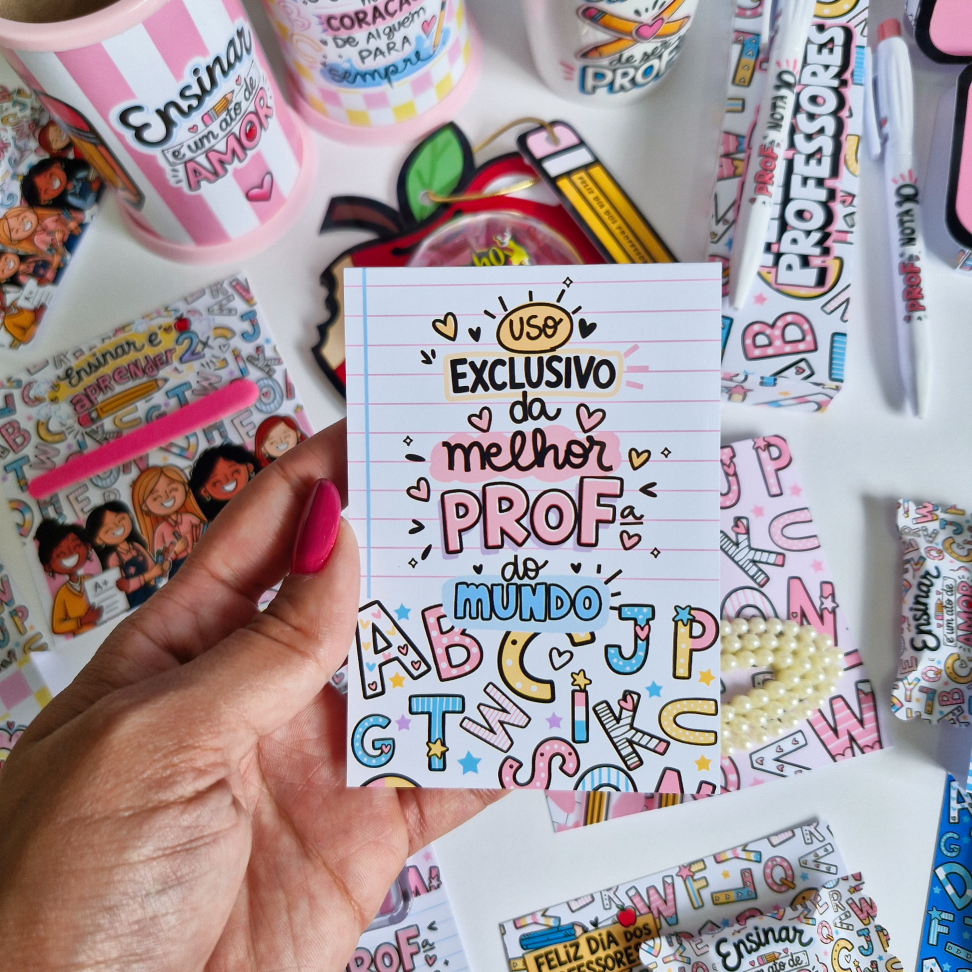 Ensinar
é um ato de
AMOR
CORAÇÃO
DE Alguém
PARA
sempre
de ser
PROF
PROFESSORES
PROF NOTA 10
PROF NOTA 10
FELIZ DIA DOS PROFESSORES
Ensinar e
aprender 2x
A+
USO
EXCLUSIVO
da
melhor
PROFa
do
MUNDO
A B C J P
G T W I K C
S
Ensinar
é um ato de
AMOR
PROFa
FELIZ DIA DOS
PROFESSORES
Ensinar
é um ato de